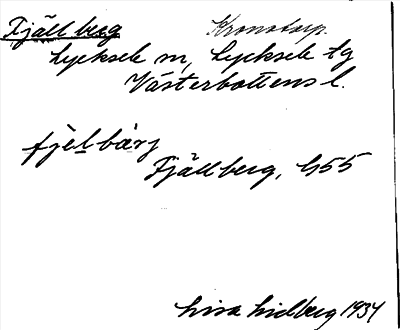 Fjällberg Kronotorp.
Lycksele sn, Lycksele tg
Västerbottens l.
fjèlbàrj
Fjällberg, G55
Lisa Lidberg 1934